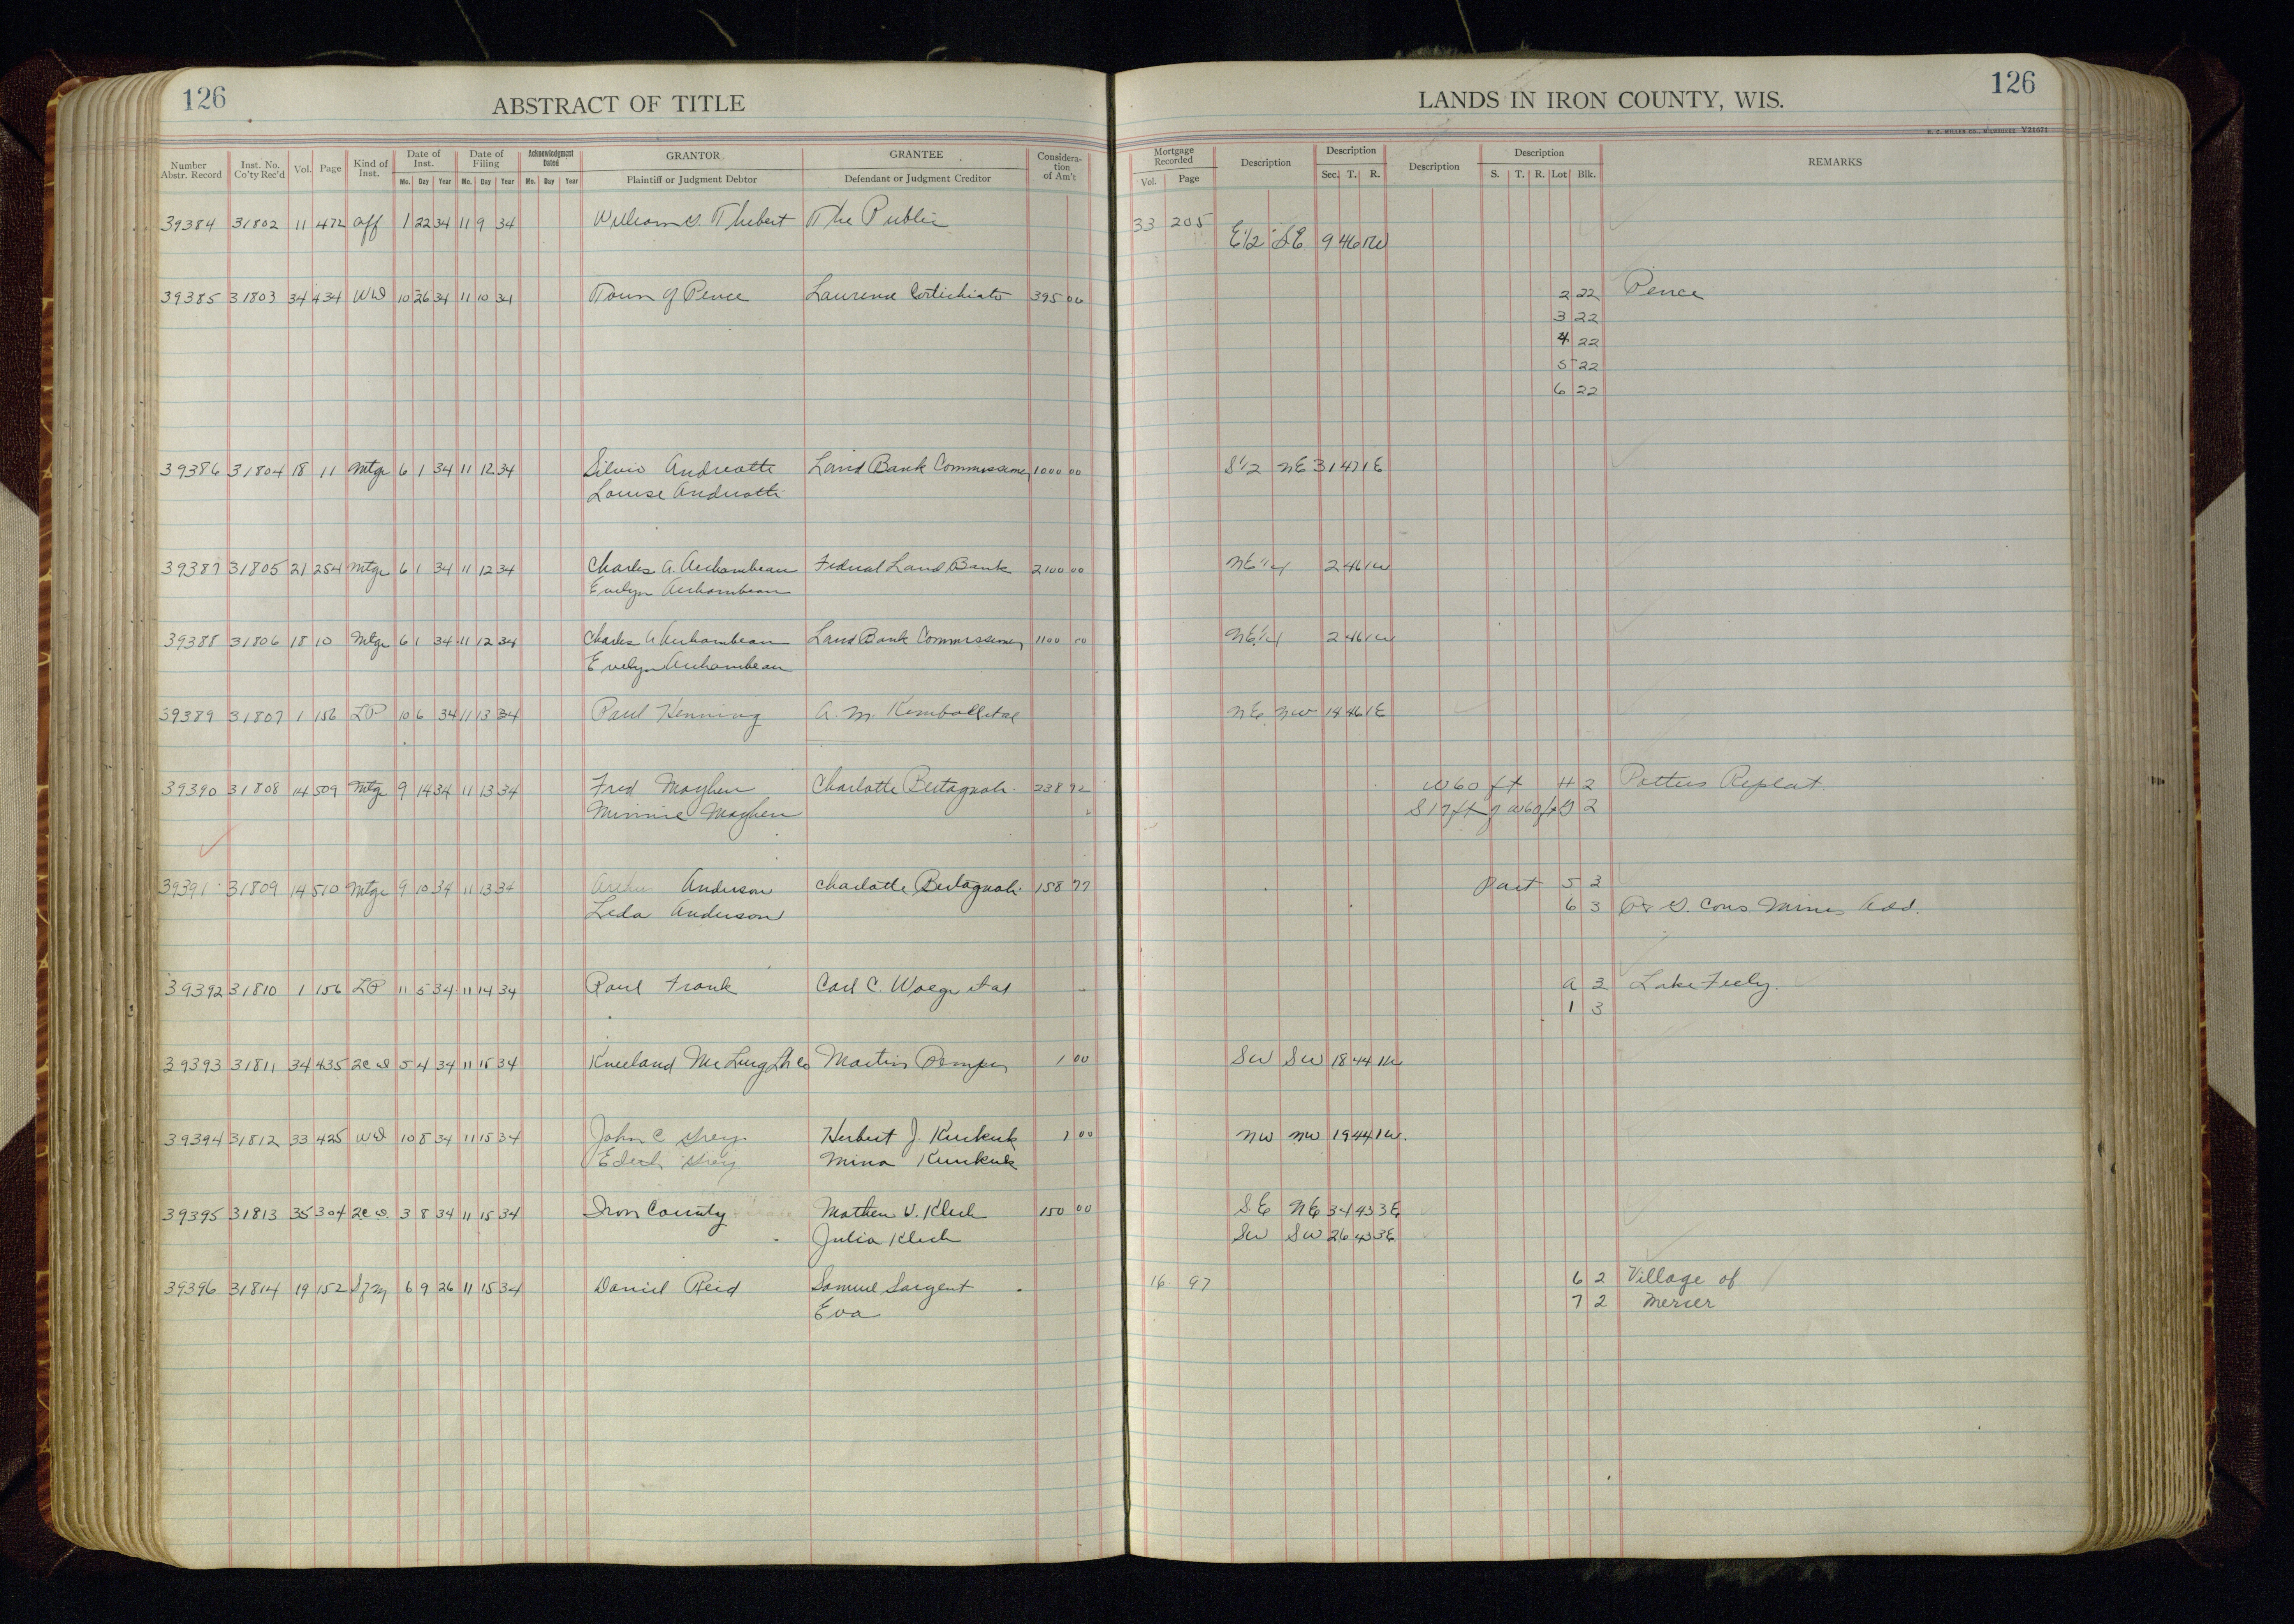 126
ABSTRACT OF TITLE
LANDS IN IRON COUNTY, WIS.
126
H. C. MILLER CO., MILWAUKEE V21671
Number Abstr. Record Inst. No. Co'ty Rec'd Vol. Page Kind of Inst. Date of Inst. Mo. Day Year Date of Filing Mo. Day Year Acknowledgment Dated Mo. Day Year GRANTOR Plaintiff or Judgment Debtor GRANTEE Defendant or Judgment Creditor Consideration of Am't
Mortgage Recorded Vol. Page Description Description Sec. T. R. Description Description S. T. R. Lot Blk. REMARKS
39384 31802 11 472 aff 1 22 34 11 9 34 William S. Thibert The Public 33 205
E1/2 SE 9 46 1W
39385 31803 34 434 WD 10 26 34 11 10 34 Town of Pence Laurence 395 00 2 22 Pence
3 22
4 22
5 22
6 22
39386 31804 18 11 Mtge 6 1 34 11 12 34 Silvio Andreatti Land Bank Commissioner 1000 00 S1/2 NE 31 47 1E
Louise Andreatti
39387 31805 21 254 Mtge 6 1 34 11 12 34 Charles A. Archambeau Federal Land Bank 2100 00 NE1/4 2 46 1W
Evelyn Archambeau
39388 31806 18 10 Mtge 6 1 34 11 12 34 Charles A Archambeau Land Bank Commissioner 1100 00 NE1/4 2 46 1W
Evelyn Archambeau
39389 31807 1 156 LP 10 6 34 11 13 34 Paul Henning A. M. Kimball et al NE NW 14 46 1E
39390 31808 14 509 Mtge 9 14 34 11 13 34 Fred Mayhew Charlotte Bertagnoli 238 92 W 60 ft H 2 Potters Replat.
Minnie Mayhew S 17 ft of W 60 ft G 2
39391 31809 14 510 Mtge 9 10 34 11 13 34 Anderson Charlotte Bertagnoli 158 77 part 5 3
Leda Anderson 6 3 Cons Mines Add.
39392 31810 1 156 LP 11 5 34 11 14 34 Paul Frank Carl C. et al A 3 Lake
1 3
39393 31811 34 435 2CD 5 4 34 11 15 34 Kneeland Mc Lurg Lb Co Martin 1 00 SW SW 18 44 1W
39394 31812 33 425 WD 10 8 34 11 15 34 John C Herbert J. Kurkuk 1 00 NW NW 19 44 1W.
Edith Mina Kurkuk
39395 31813 35 304 2CD. 3 8 34 11 15 34 Iron County Mathew V. Klech 150 00 SE NE 34 43 3E
Julia Klech SW SW 26 43 3E
39396 31814 19 152 SfM 6 9 26 11 15 34 Daniel Reid Samuel Sargent 16 97 6 2 Village of
Eva 7 2 Mercer